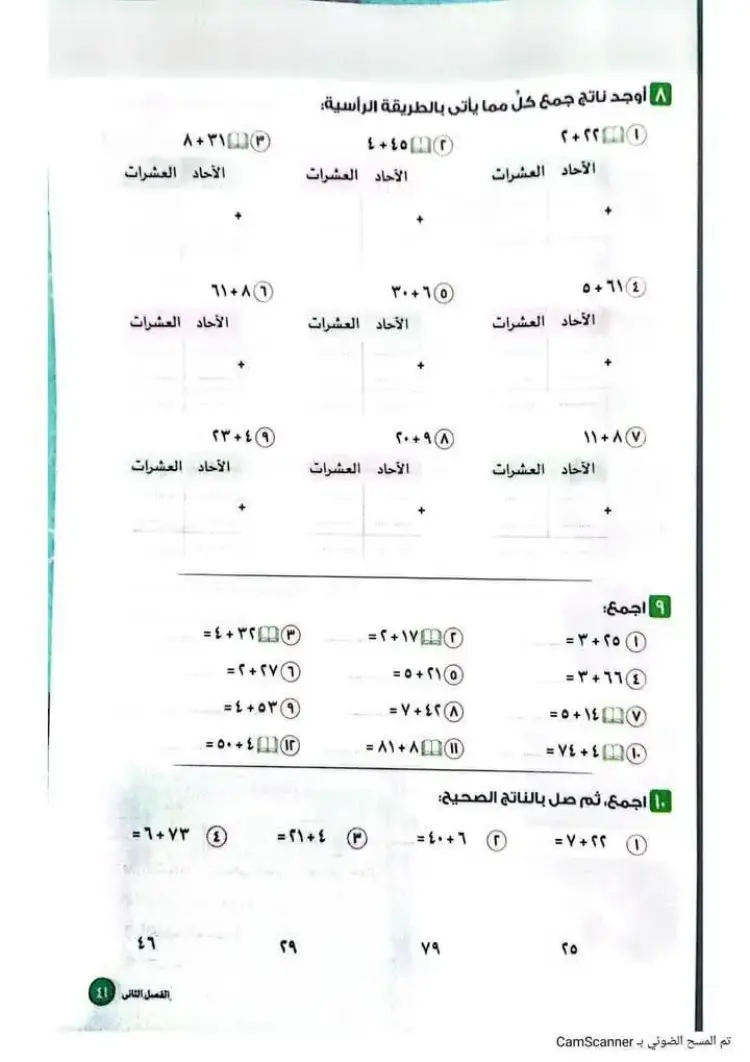 ٨ أوجد ناتج جمع كلٍّ مما يأتى بالطريقة الرأسية:
١ ٢٢ + ٢
٢ ٤٥ + ٤
٣ ٣١ + ٨
الآحاد العشرات
الآحاد العشرات
الآحاد العشرات
+
+
+
٤ ٦١ + ٥
٥ ٦ + ٣٠
٦ ٨ + ٦١
الآحاد العشرات
الآحاد العشرات
الآحاد العشرات
+
+
+
٧ ٨ + ١١
٨ ٩ + ٢٠
٩ ٤ + ٢٣
الآحاد العشرات
الآحاد العشرات
الآحاد العشرات
+
+
+
٩ اجمع:
١ ٢٥ + ٣ =
٢ ١٧ + ٢ =
٣ ٣٢ + ٤ =
٤ ٦٦ + ٣ =
٥ ٢١ + ٥ =
٦ ٢٧ + ٢ =
٧ ١٤ + ٥ =
٨ ٤٢ + ٧ =
٩ ٥٣ + ٤ =
١٠ ٤ + ٧٤ =
١١ ٨ + ٨١ =
١٢ ٤ + ٥٠ =
١٠ اجمع، ثم صل بالناتج الصحيح:
١ ٢٢ + ٧ =
٢ ٦ + ٤٠ =
٣ ٤ + ٢١ =
٤ ٧٣ + ٦ =
٢٥ ٧٩ ٢٩ ٤٦
الفصل الثانى ٤١
تم المسح الضوئي بـ CamScanner